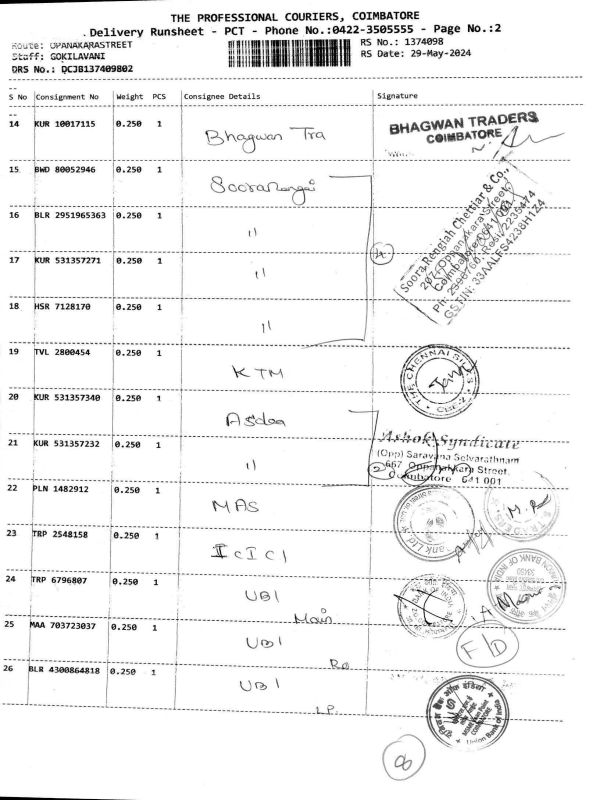 THE PROFESSIONAL COURIERS, COIMBATORE
Delivery Runsheet - PCT - Phone No.:0422-3505555 - Page No.:2
Route: OPANAKARASTREET
RS No.: 1374098
Staff: GOKILAVANI
RS Date: 29-May-2024
DRS No.: DCJB137409802
S No Consignment No Weight PCS Consignee Details Signature
14 KUR 10017115 0.250 1 Bhagwan Tra
BHAGWAN TRADERS
COIMBATORE
15 BWD 80052946 0.250 1 Soorarengai
16 BLR 2951965363 0.250 1 "
17 KUR 531357271 0.250 1 "
4
Soora Rengiah Chettiar & Co.,
Oppanakara Street,
GSTIN: 33AALFS4238H1Z4
18 HSR 7128170 0.250 1 "
19 TVL 2800454 0.250 1 KTM
THE CHENNAI SILKS
CBE-2
20 KUR 531357340 0.250 1 Asdea
21 KUR 531357232 0.250 1 "
Ashok Syndicate
(Opp) Saravana Selvarathnam
667 Oppanakkara Street
Coimbatore 641 001
2
22 PLN 1482912 0.250 1 MAS
23 TRP 2548158 0.250 1 ICICI
24 TRP 6796807 0.250 1 UBI
Main
UNION BANK OF INDIA
25 MAA 703723037 0.250 1 UBI
RO
F/D
26 BLR 4300864818 0.250 1 UBI
LP.
Union Bank of India
8